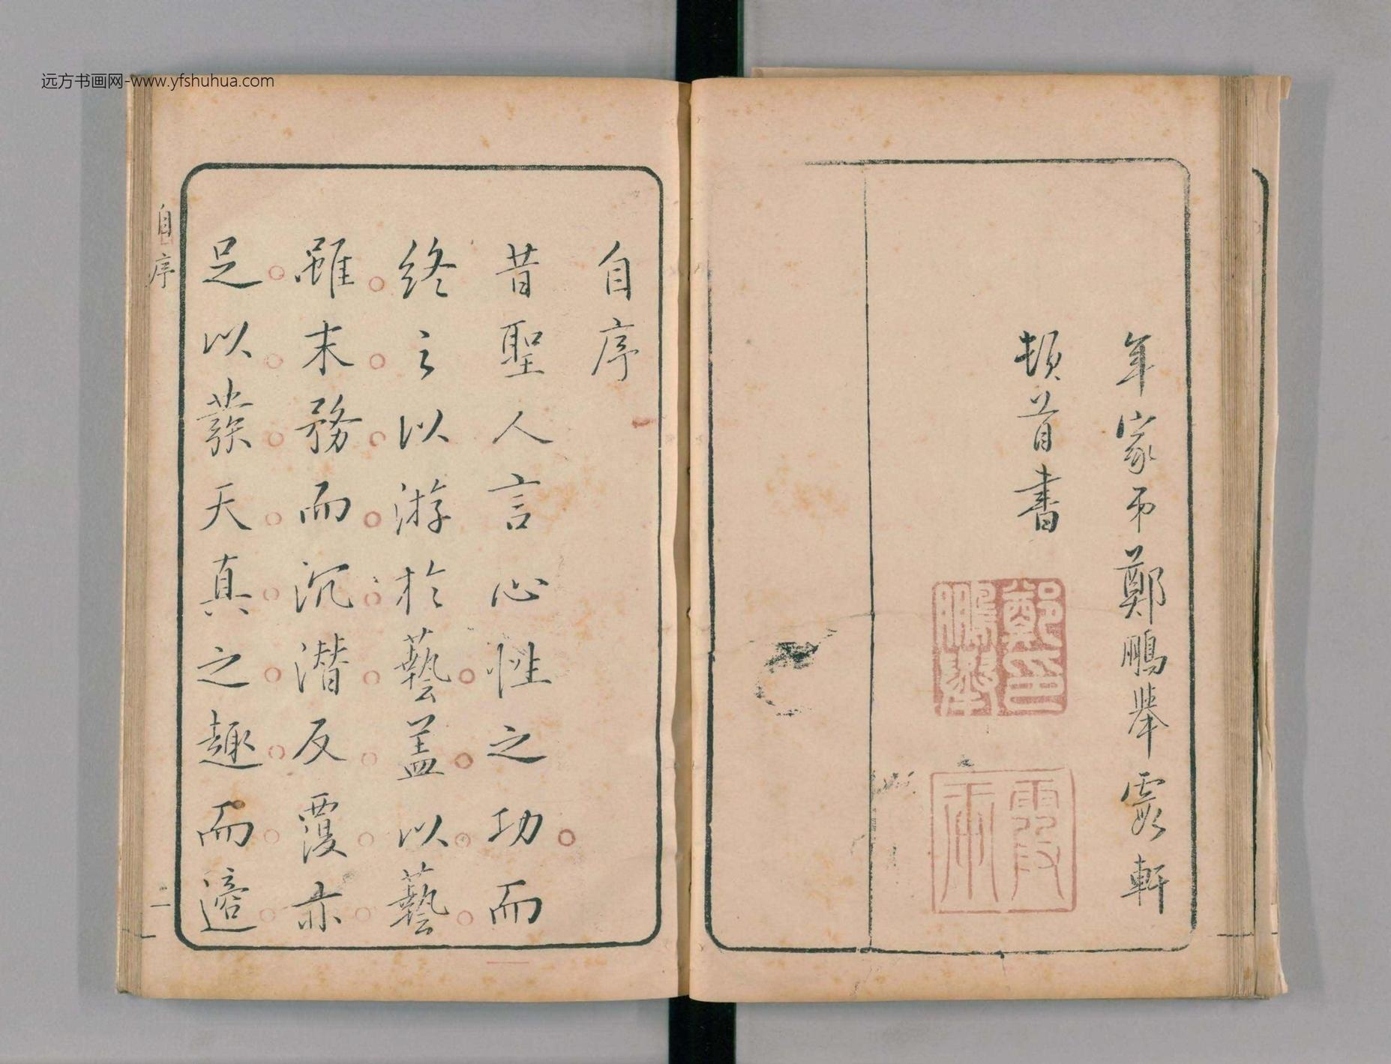 远方书画网-www.yfshuhua.com
年家弟鄭鵬舉霞軒
頓首書
鄭印鵬舉
自序
昔聖人言心性之功而
終之以游於藝蓋以藝
雖末務而沉潜反覆亦
足以發天真之趣而適
自序
二